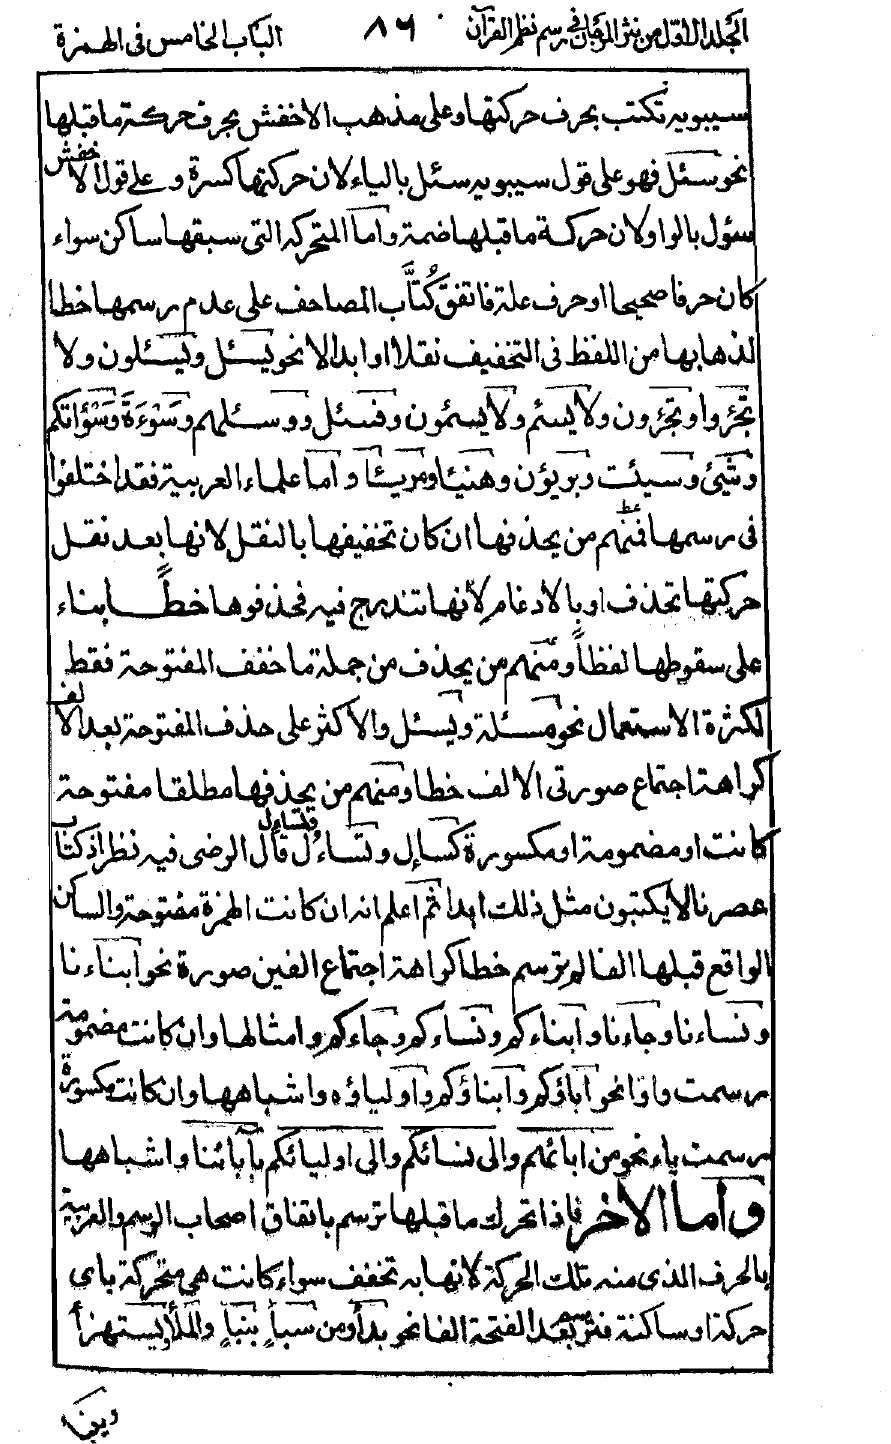 المجلد الاوّل من نثر المرجان فی رسم نظم القرآن ۸۶ الباب الخامس فی الهمزة
سيبويه تكتب بحرف حركتها وعلى مذهب الاخفش بحرف حركة ما قبلها
نحو سئل فهو على قول سيبويه سئل بالياء لان حركتها كسرة وعلى قول الاخفش
سؤل بالواو لان حركة ما قبلها ضمة واما المتحركة التى سبقها ساكن سواء
كان حرفا صحيحا او حرف علة فاتفق كُتّاب المصاحف على عدم رسمها خطا
لذهابها من اللفظ فى التخفيف نقلا او ابدالا نحو يسئل ويسئلون ولا
تجئروا وتجئرون ولا يسئم ولا يسئمون وفسئل ووسئلهم وسَوْءَةَ وسَوْءَاتكم
وشئ وسيئت وبريؤن وهنيئا ومريئا واما علماء العربية فقد اختلفوا
فى رسمها فمنهم من يحذفها ان كان تخفيفها بالنقل لانها بعد نقل
حركتها تحذف او بالادغام لانها تندرج فيه فحذفوها خطًا بناء
على سقوطها لفظاً ومنهم من يحذف من جملة ما خفف المفتوحة فقط
لكثرة الاستعمال نحو مسئلة ويسئل والاكثر على حذف المفتوحة بعد الالف
كراهة اجتماع صورتى الالف خطا ومنهم من يحذفها مطلقا مفتوحة
كانت او مضمومة او مكسورة كسإل وتساءل وتساؤل قال الرضى فيه نظر اذ كتاب
عصرنا لا يكتبون مثل ذلك ابدا ثم اعلم انه ان كانت الهمزة مفتوحة والساكن
الواقع قبلها الفا لم ترسم خطا كراهة اجتماع الفين صورة نحو ابناءنا
ونساءنا وجاءنا وابناءكم ونساءكم وجاءكم وامثالها وان كانت مضمومة
رسمت واوا نحو اباؤكم وابناؤكم واولياؤه واشباهها وان كانت مكسورة
رسمت ياء نحو من ابائهم والى نسائكم والى اوليائكم بآبائنا واشباهها
واما الاخر فاذا تحرك ما قبلها ترسم باتفاق اصحاب الرسم والعربية
بالحرف الذى منه تلك الحركة لانها به تخفف سواء كانت هى متحركة باى
حركة او ساكنة فترسم بعد الفتحة الفا نحو بدأ ومن سبأٍ بنبأٍ والملأ ويستهزأ
وينبأ